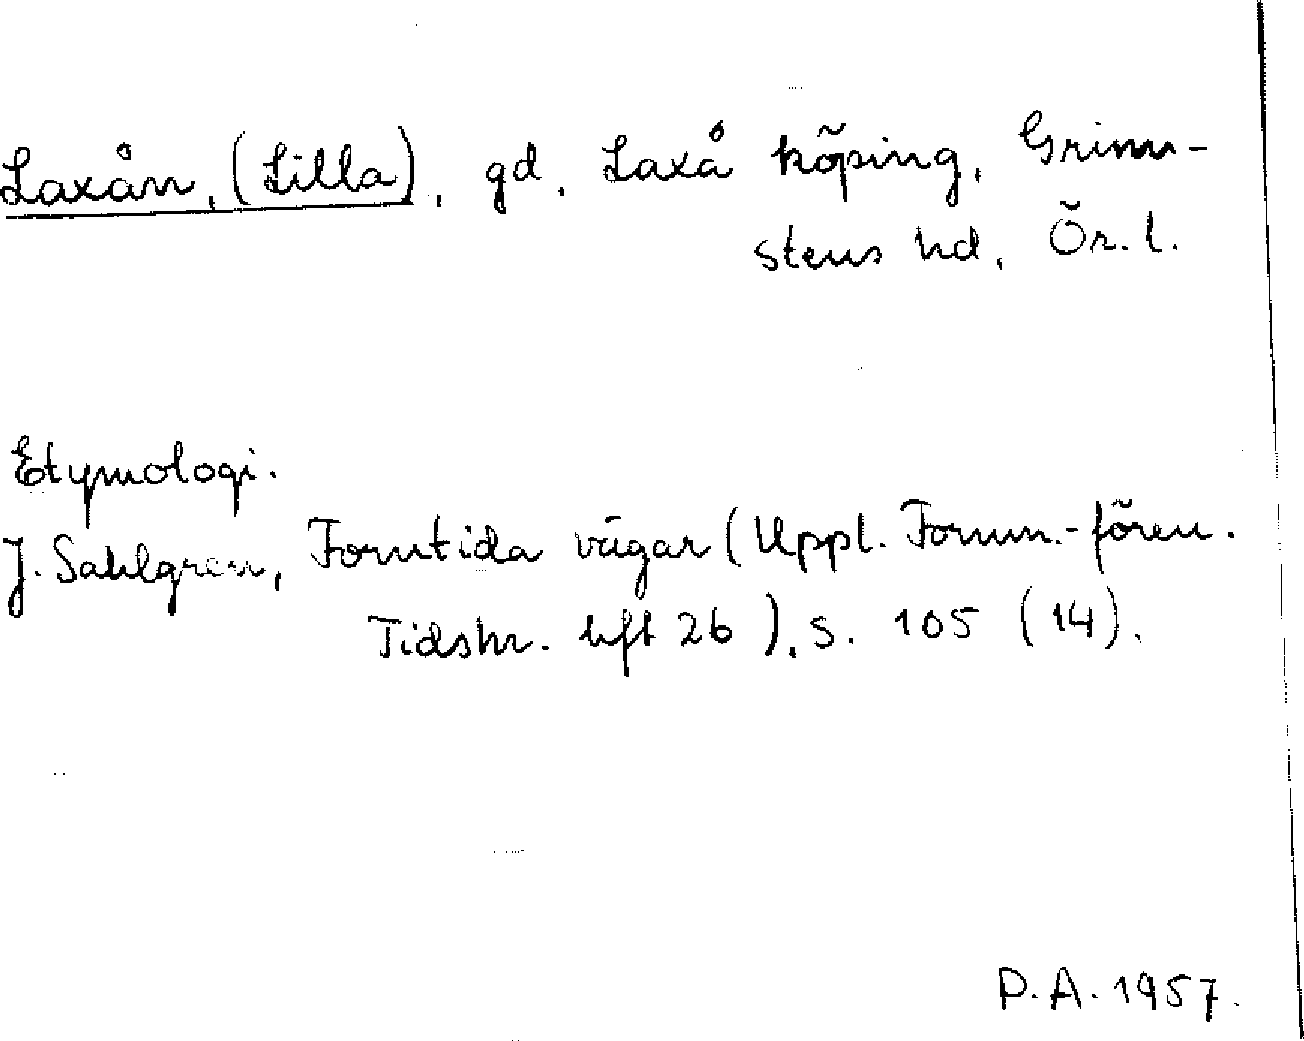 Laxån, (Lilla), gd. Laxå köping, Grims-
stens hd, Ör. l.
Etymologi.
J. Sahlgren, Forntida vägar (Uppl. Fornm.-fören.
Tidskr. hft 26), s. 105 (14).
P.A. 1957.